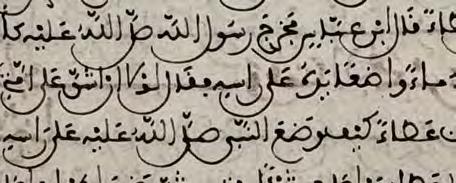 عطاء قال ابن عباس فخرج رسول الله صلى الله عليه كأ
ماء واضعا يده على راسه فقال لولا ان اشق على امتي
عطاء كيف وضع النبي صلى الله عليه على راسه